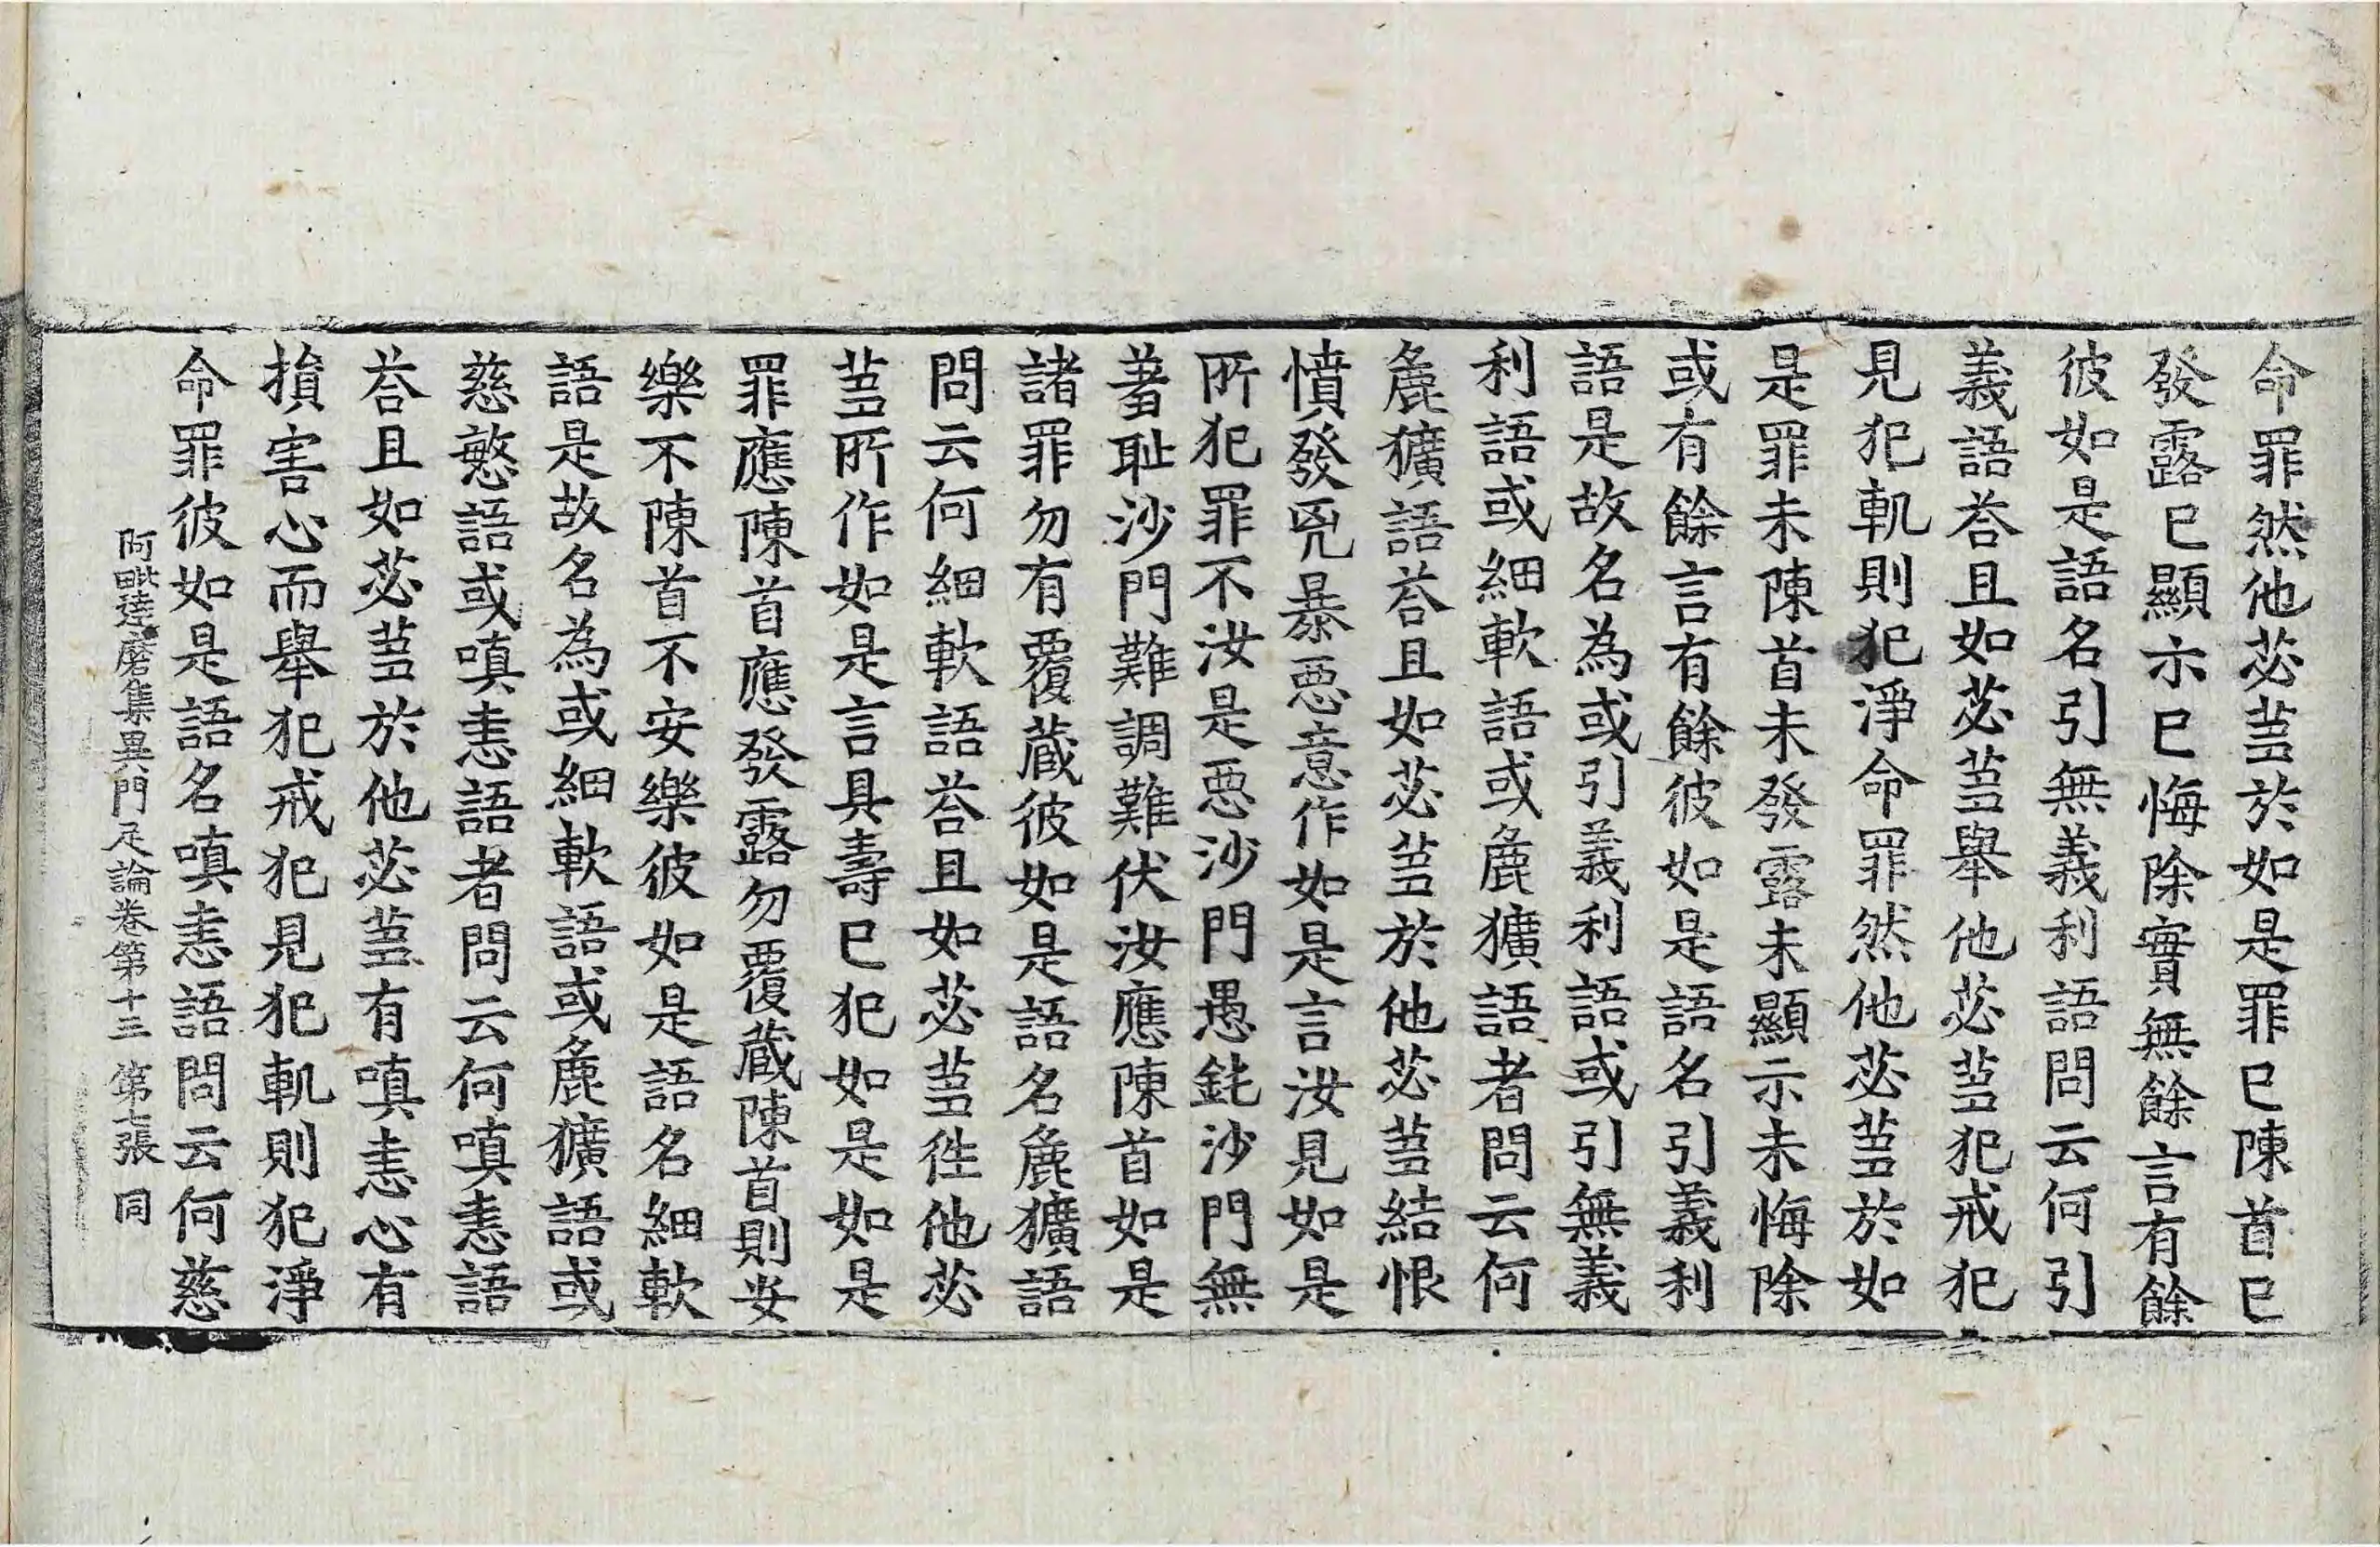 命罪然他苾蒭於如是罪已陳首已
發露已顯示已悔除實無餘言有餘
彼如是語名引無義利語問云何引
義語荅且如苾蒭舉他苾蒭犯戒犯
見犯軌則犯淨命罪然他苾蒭於如
是罪未陳首未發露未顯示未悔除
或有餘言有餘彼如是語名引義利
語是故名為或引義利語或引無義
利語或細軟語或麁獷語者問云何
麁獷語荅且如苾蒭於他苾蒭結恨
憤發兇暴惡意作如是言汝見如是
所犯罪不汝是惡沙門愚鈍沙門無
羞恥沙門難調難伏汝應陳首如是
諸罪勿有覆藏彼如是語名麁獷語
問云何細軟語荅且如苾蒭往他苾
蒭所作如是言具壽已犯如是如是
罪應陳首應發露勿覆藏陳首則安
樂不陳首不安樂彼如是語名細軟
語是故名為或細軟語或麁獷語或
慈愍語或嗔恚語者問云何嗔恚語
荅且如苾蒭於他苾蒭有嗔恚心有
損害心而舉犯戒犯見犯軌則犯淨
命罪彼如是語名嗔恚語問云何慈
阿毗達磨集異門足論卷第十三 第七張 同